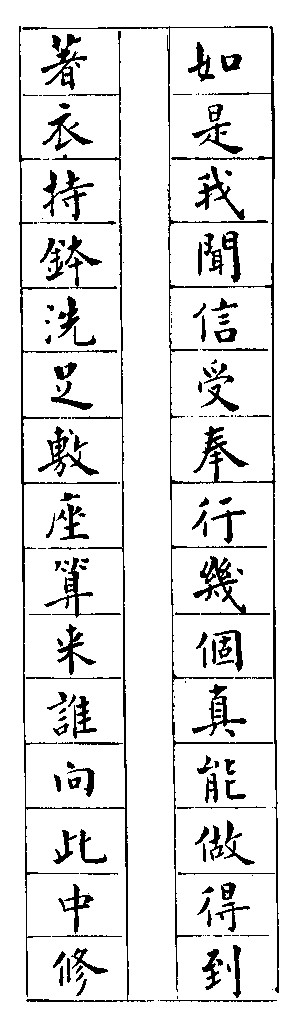 如是我聞信受奉行幾個真能做得到
著衣持鉢洗足敷座算来誰向此中修